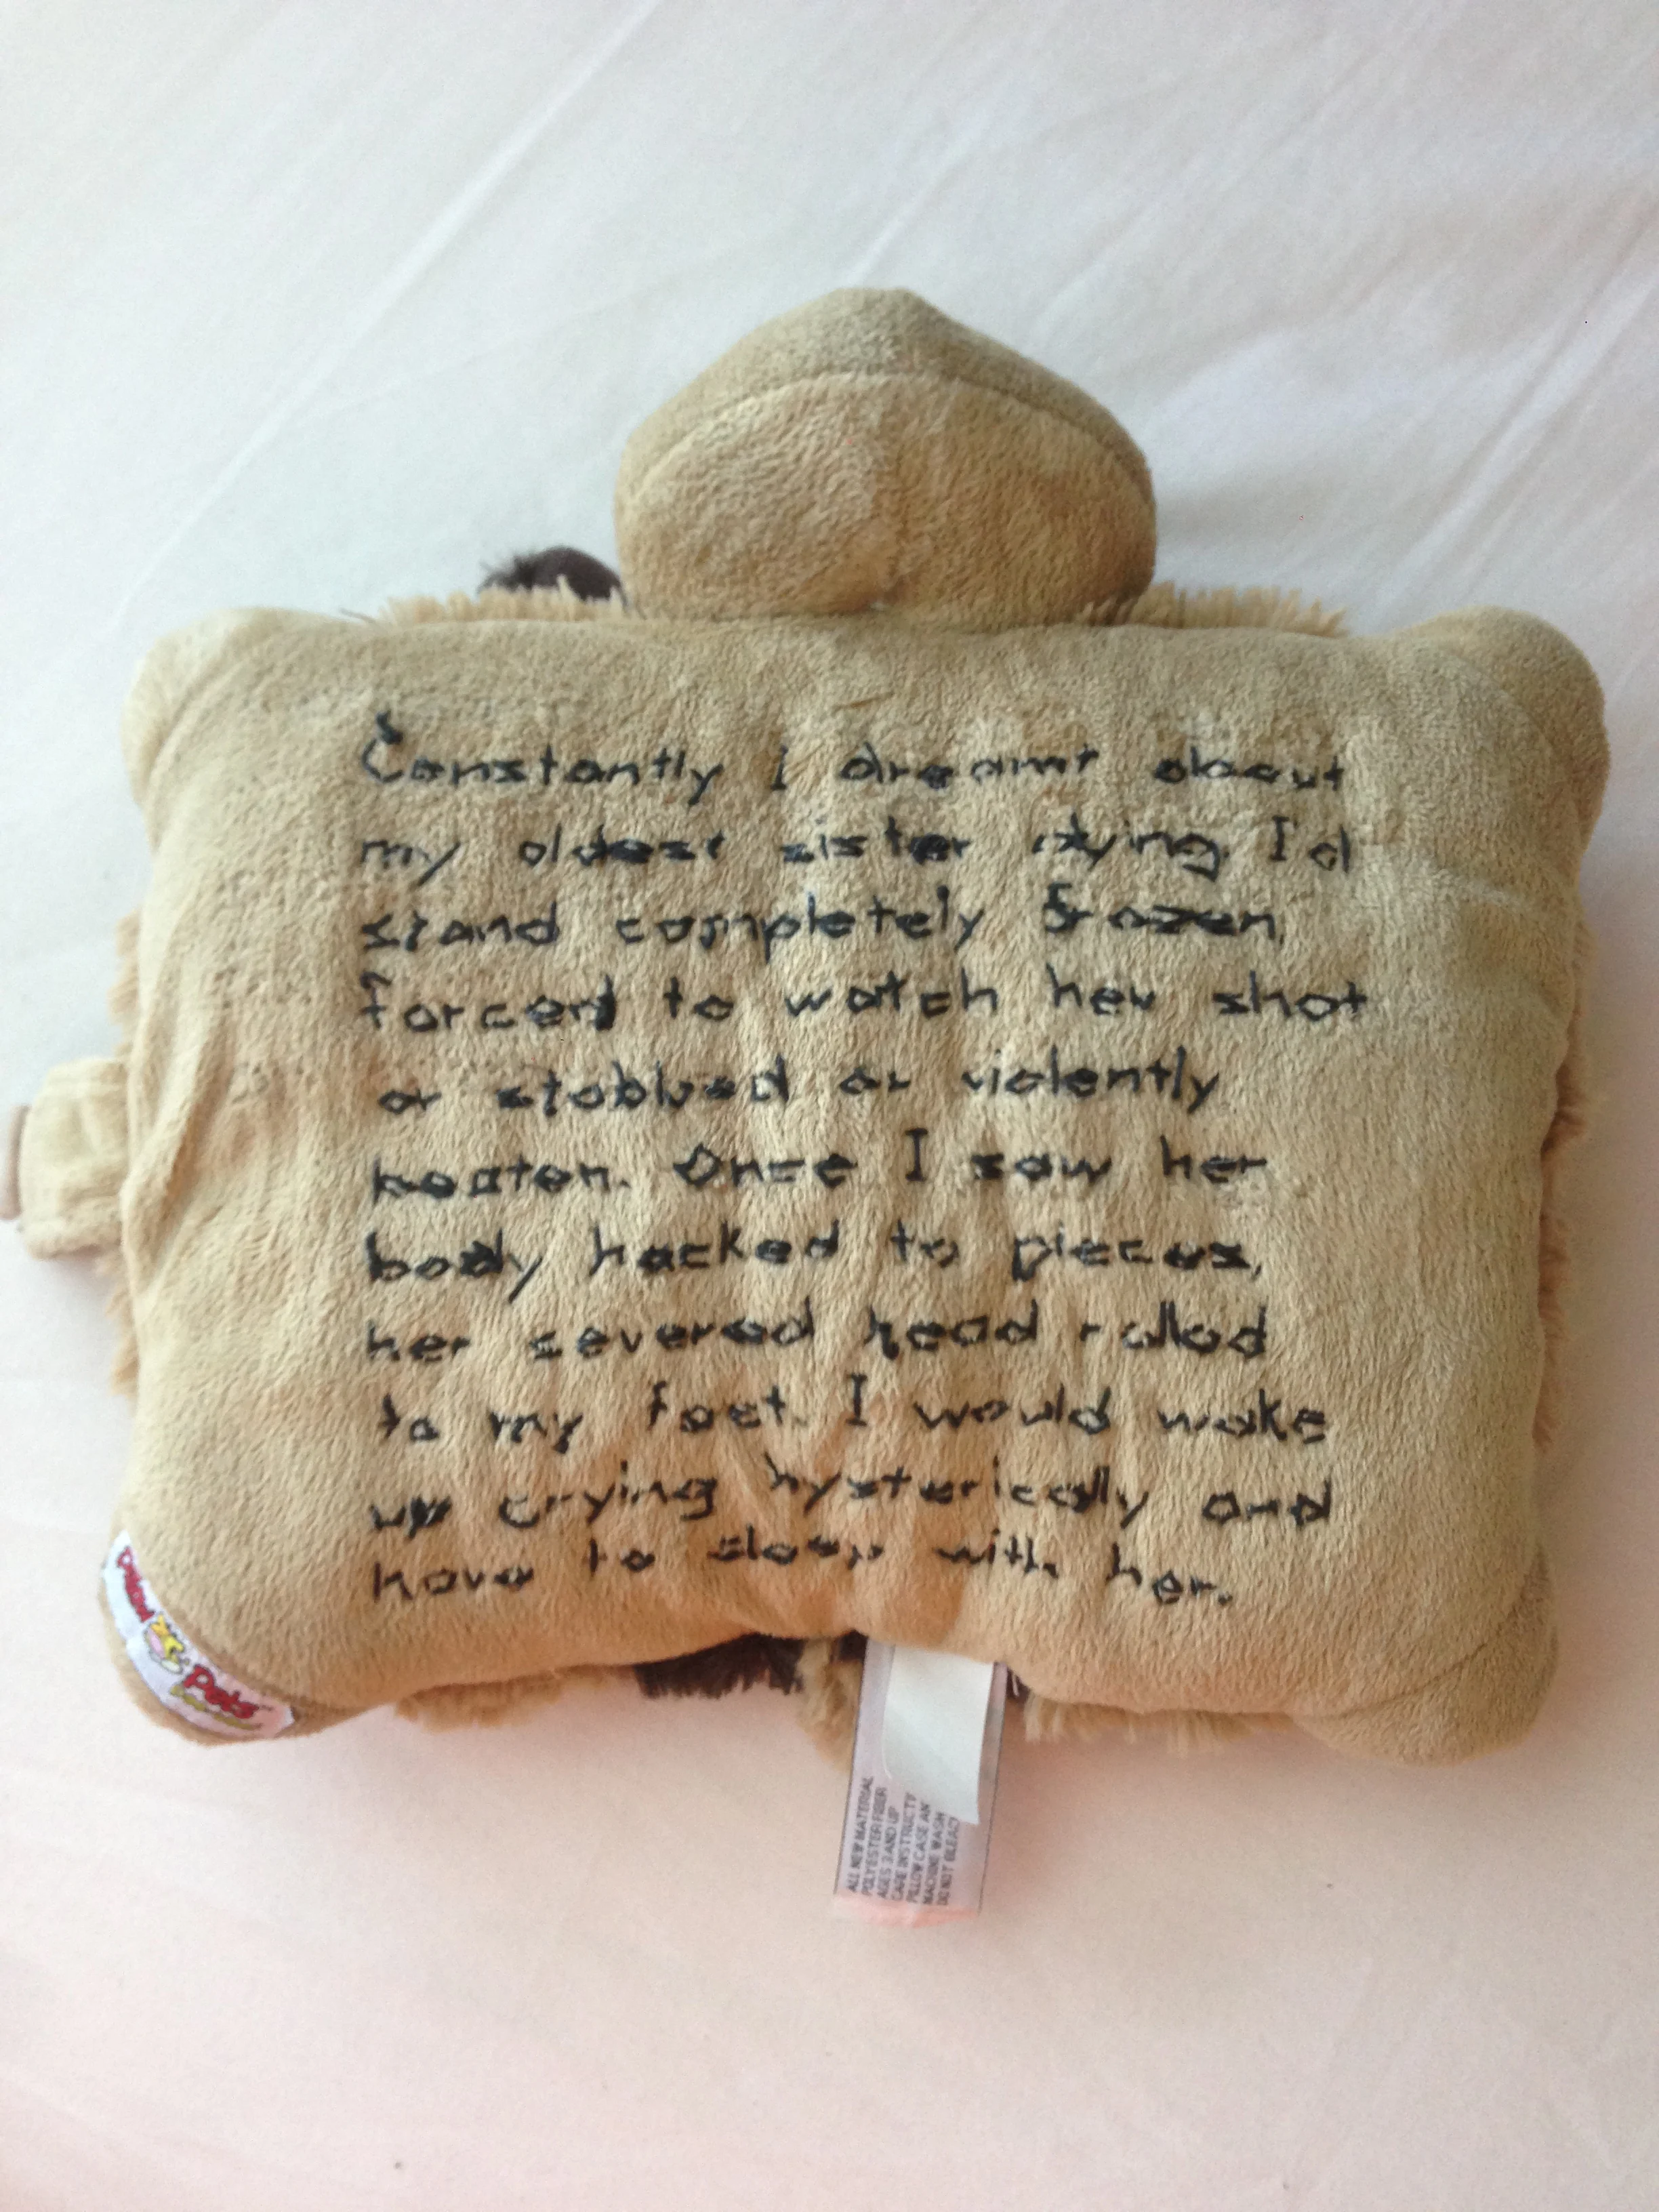 Constantly I dreamt about
my oldest sister dying. I'd
stand completely frozen,
forced to watch her shot
or stabbed or violently
beaten. Once I saw her
body hacked to pieces,
her severed head rolled
to my feet. I would wake
up crying hysterically and
have to sleep with her.
Pillow Pets
ALL NEW MATERIAL
POLYESTER FIBER
AGES 3 AND UP
CARE INSTRUCTI
PILLOW CASE AN
MACHINE WASH
DO NOT BLEAC